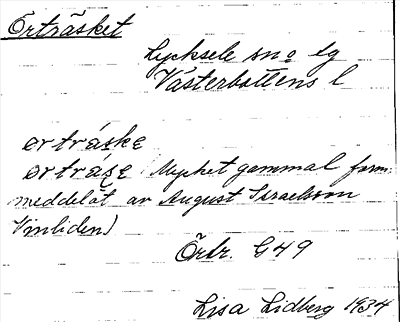 Örträsket
Lycksele sn o lg
Västerbottens l
ortráske
ortráse (Mycket gammal form
meddelat av August Israelsson
Vinliden)
Örtr. G49
Lisa Lidberg 1934